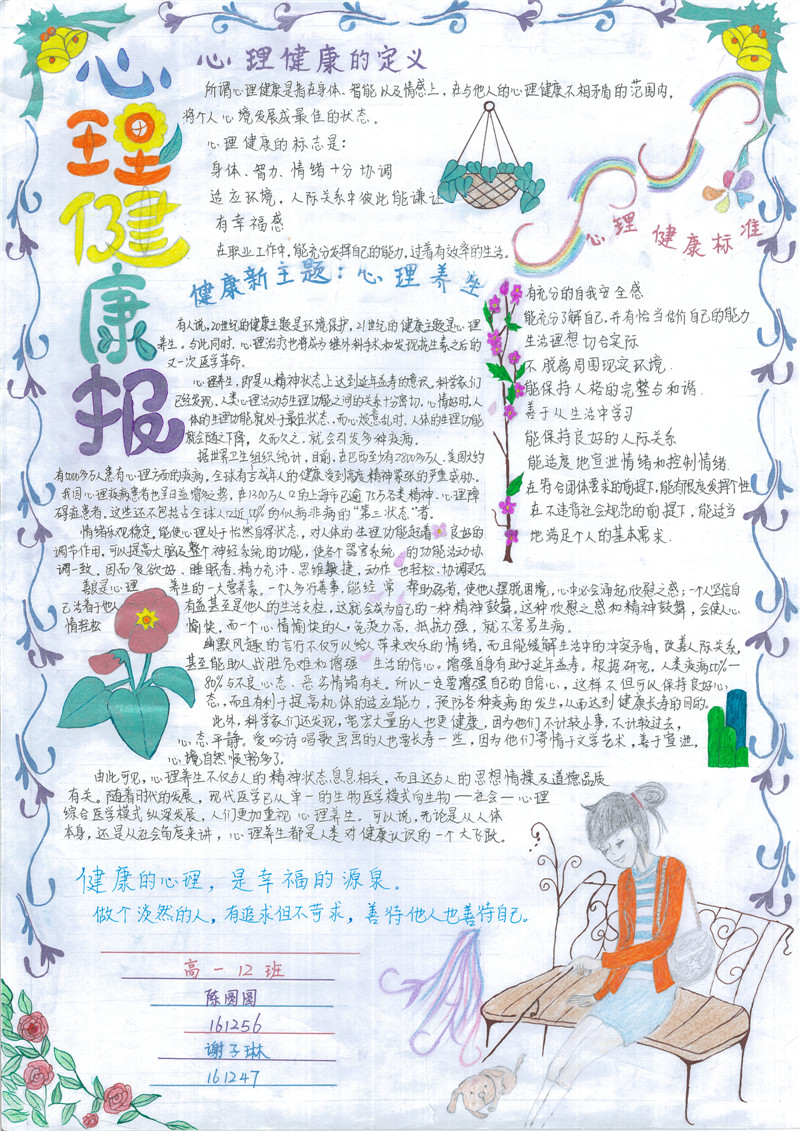 心理健康报
心理健康的定义
所谓心理健康是指在身体、智能以及情感上，在与他人的心理健康不相矛盾的范围内，
将个人心境发展成最佳的状态。
心理健康的标志是：
身体、智力、情绪十分协调
适应环境，人际关系中彼此能谦让
有幸福感
在职业工作中，能充分发挥自己的能力，过着有效率的生活。
心理健康标准
有充分的自我安全感
能充分了解自己，并有恰当估价自己的能力
生活理想切合实际
不脱离周围现实环境.
能保持人格的完整与和谐.
善于从生活中学习
能保持良好的人际关系
能适度地宣泄情绪和控制情绪.
在符合团体要求的前提下，能有限度发挥个性
在不违背社会规范的前提下，能适当
地满足个人的基本需求.
健康新主题：心理养生
有人说，20世纪的健康主题是环境保护，21世纪的健康主题是心理
养生。与此同时，心理治疗也将成为继外科手术和发现养生素之后的
又一次医学革命。
心理养生，即是从精神状态上达到延年益寿的意识。科学家们
已经发现，人类心理活动与生理功能之间的关系十分密切。心情好时，人
体的生理功能就处于最佳状态，而心烦意乱时，人体的生理功能
就会随之下降，久而久之，就会引发多种疾病。
据世界卫生组织统计，目前，在巴西至少有2800多万人、美国大约
有5000多万人患有心理方面的疾病，全球有 成年人的健康受到高度精神紧张的严重威胁。
我国心理疾病患者也呈日益增多趋势，在1300万人口的上海市已逾75万名类精神、心理障
碍症患者，这些还不包括占全球人口近50%的似病非病的“第三状态”者。
情绪乐观稳定，能使心理处于怡然自得状态，对人体的生理功能起着良好的
调节作用，可以提高大脑及整个神经系统的功能，使各个器官系统的功能活动协
调一致，因而食欲好、睡眠香、精力充沛、思维敏捷，动作也轻松、协调灵巧。
善良是心理养生的一大营养素。一个人多行善事，能经常帮助弱者，使他人摆脱困境，心中必会涌起欣慰之感；一个人坚信自
己活着于他人有益甚至是他人的生活支柱，这就会成为自己的一种精神鼓舞，这种欣慰之感和精神鼓舞，会使人心
情轻松愉快，而一个心情愉快的人，免疫力高，抵抗力强，就不容易生病。
幽默风趣的言行不仅可以给人带来欢乐的情绪，而且能缓解生活中的冲突矛盾，改善人际关系，
甚至能助人战胜危难和增强生活的信心。增强自身有助于延年益寿。根据研究，人类疾病50%—
80%与不良心态、恶劣情绪有关。所以一定要增强自己的自信心，这样不但可以保持良好心
态，而且有利于提高机体的适应能力，预防各种疾病的发生，从而达到健康长寿的目的。
此外，科学家们还发现，宽宏大量的人也更健康，因为他们不计较小事，不计较过去，
心态平静。爱吟诗唱歌画画的人也要长寿一些，因为他们寄情于文学艺术，善于宣泄，
心境自然顺畅多了。
由此可见，心理养生不仅与人的精神状态息息相关，而且还与人的思想情操及道德品质
有关。随着时代的发展，现代医学已从单一的生物医学模式向生物——社会——心理
综合医学模式纵深发展，人们更加重视心理养生。可以说，无论是从人体
本身，还是从社会角度来讲，心理养生都是人类对健康认识的一个大飞跃。
健康的心理，是幸福的源泉。
做个淡然的人，有追求但不苛求，善待他人也善待自己。
高一12班
陈圆圆
161256
谢子琳
161247